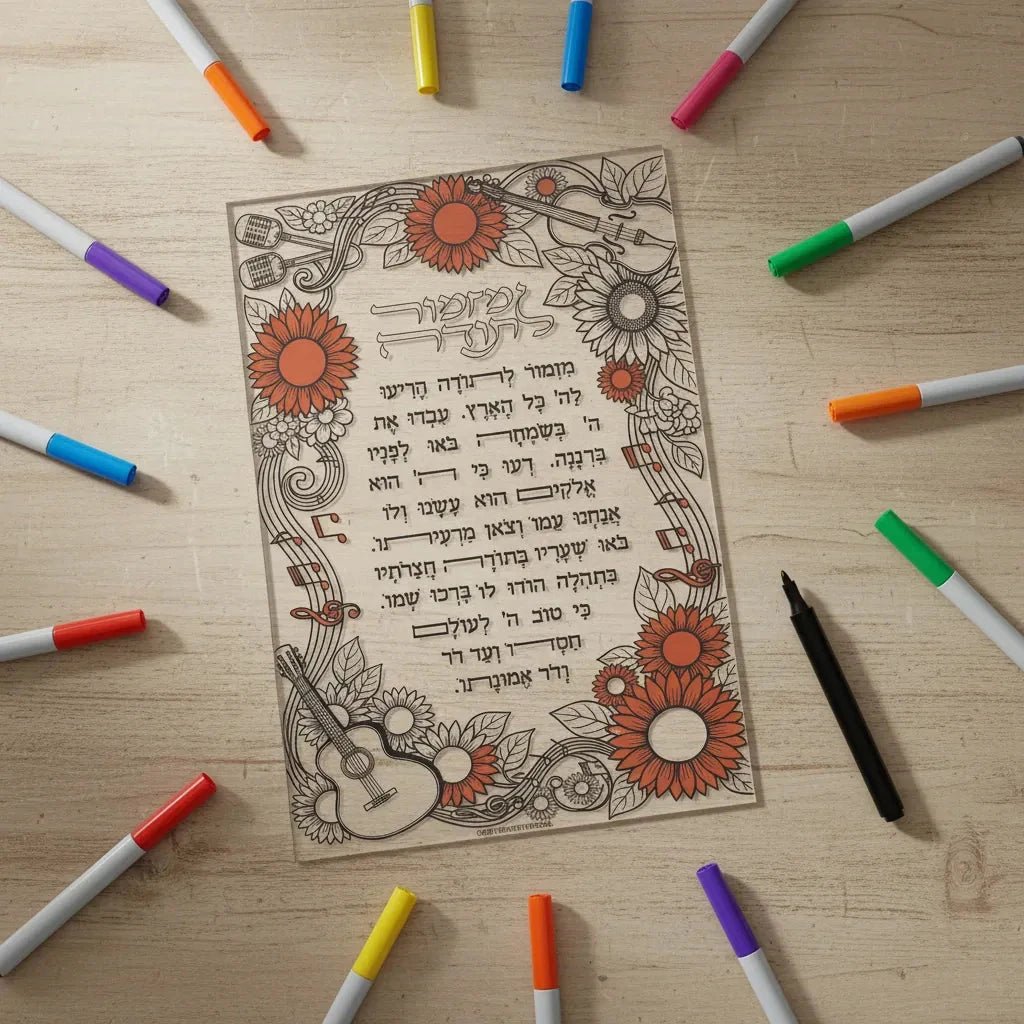 מזמור
לתודה
מִזְמוֹר לְתוֹדָה הָרִיעוּ
לַה' כָּל הָאָרֶץ. עִבְדוּ אֶת
ה' בְּשִׂמְחָה בֹּאוּ לְפָנָיו
בִּרְנָנָה. דְּעוּ כִּי ה' הוּא
אֱלֹקִים הוּא עָשָׂנוּ וְלוֹ
אֲנַחְנוּ עַמּוֹ וְצֹאן מַרְעִיתוֹ.
בֹּאוּ שְׁעָרָיו בְּתוֹדָה חֲצֵרֹתָיו
בִּתְהִלָּה הוֹדוּ לוֹ בָּרְכוּ שְׁמוֹ.
כִּי טוֹב ה' לְעוֹלָם
חַסְדּוֹ וְעַד דֹּר
וָדֹר אֱמוּנָתוֹ.